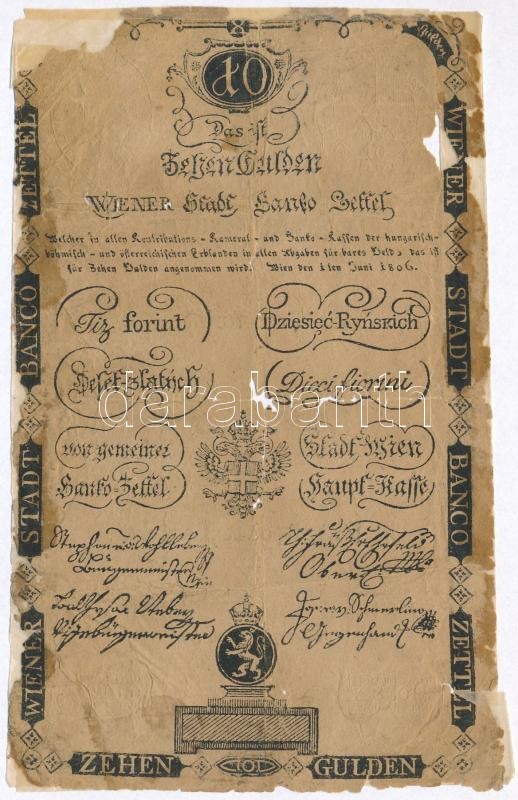 Gulden
10
Das ist
Zehen Gulden
WIENER Stadt Banko Zettel
Welcher in allen Kontributions - Kameral - und Banko - Kassen der hungarisch-
böhmisch - und österreichischen Erblanden in allen Abgaben für bares Geld, das ist
für Zehen Gulden angenommen wird. Wien den 1ten Juni 1806.
Tiz forint
Dziesięć-Ryńskich
Deset zlatých
Dieci fiorini
von gemeiner
Stadt Wien
Banko=Zettel
Haupt=Kasse
darabanth
Burgermeister
Ober
Vizebürgermeister
v. Schmerling
Gegenhand
WIENER STADT BANCO ZETTEL
WIENER STADT BANCO ZETTEL
ZEHEN 10 GULDEN